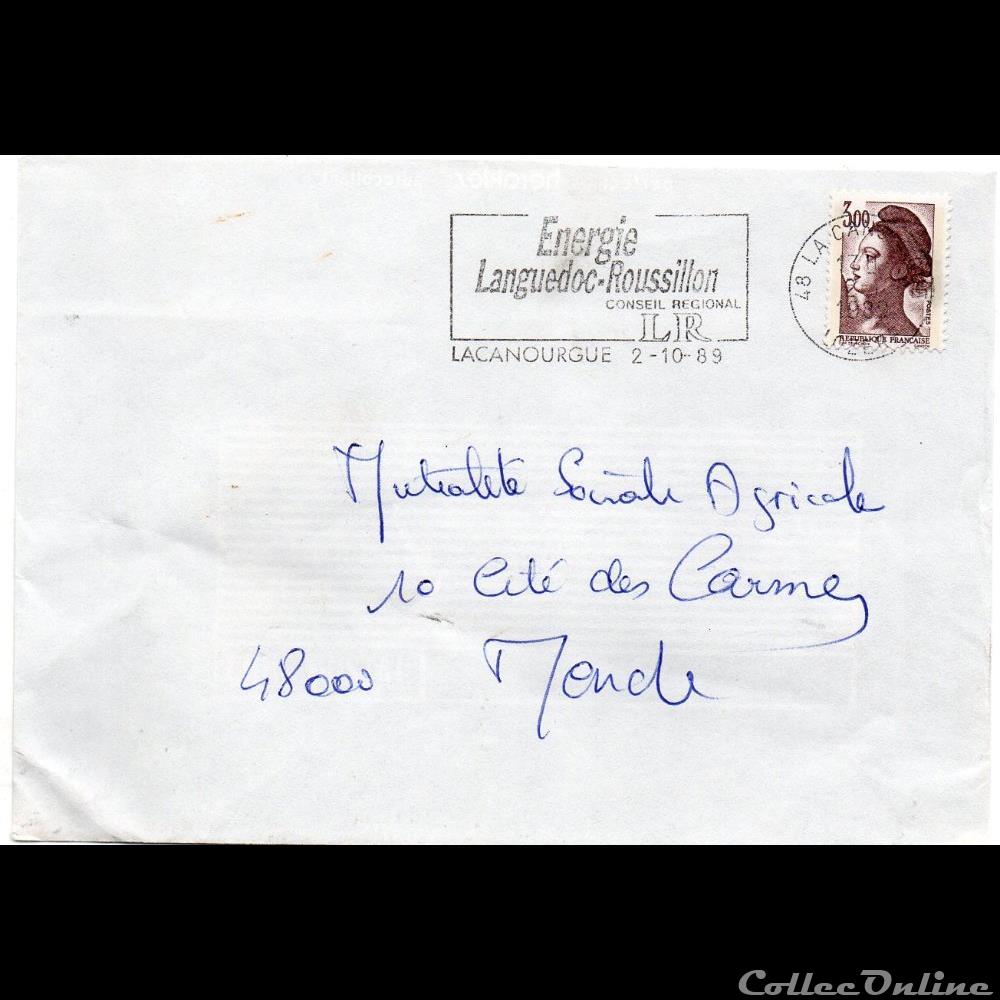 herakles
Energie
Languedoc-Roussillon
CONSEIL REGIONAL
LR
LACANOURGUE 2-10-89
3,00
48 LA CAN
POSTES
REPUBLIQUE FRANÇAISE
Mutualité Sociale Agricole
10 Cité des Carmes
48000 Mende
CollecOnline